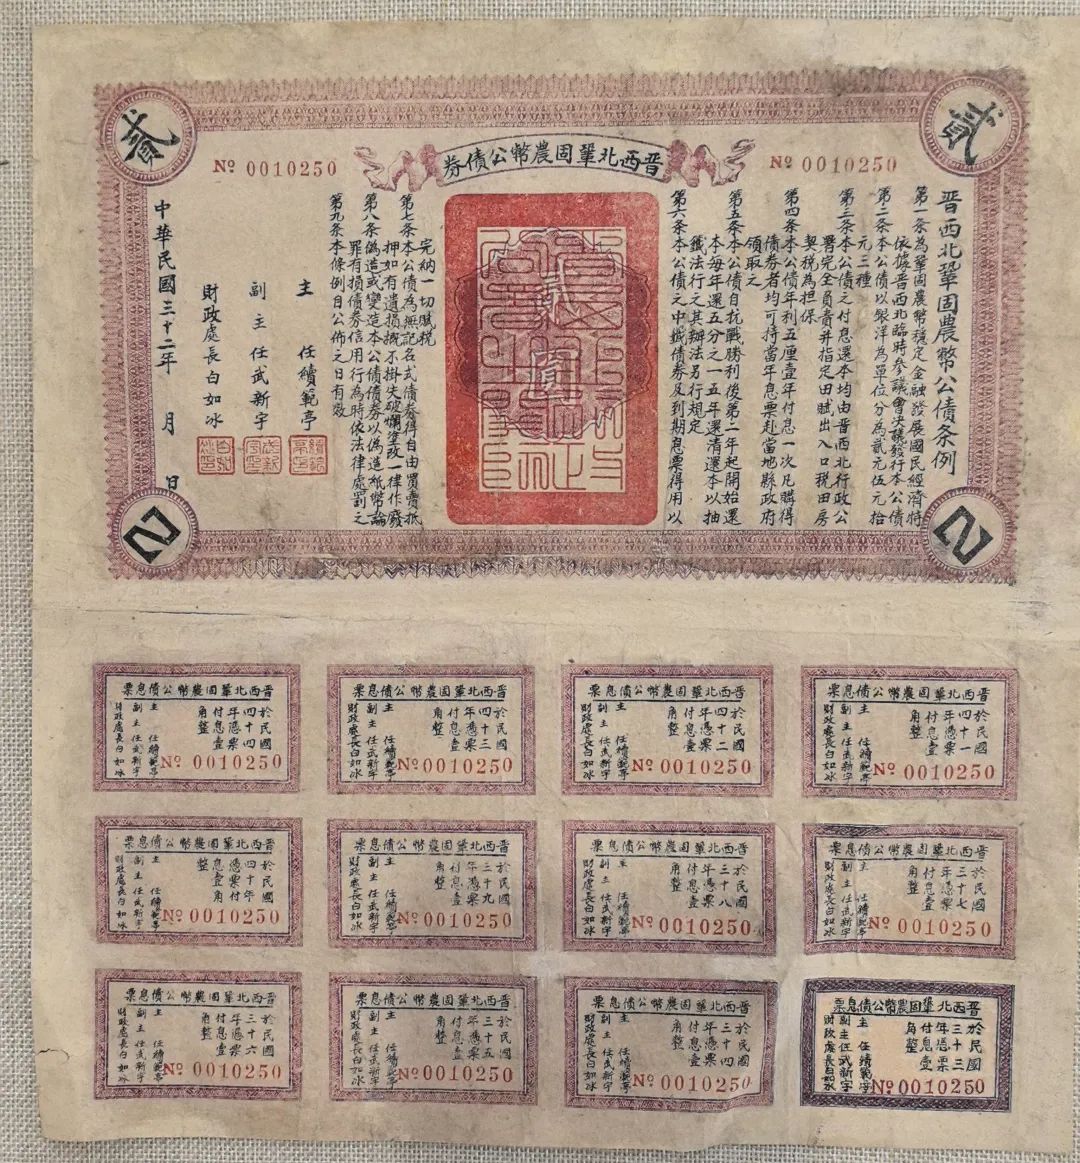 晋西北鞏固農幣公債券
№ 0010250
№ 0010250
貳
貳
晋西北鞏固農幣公債条例
第一条為鞏固農幣穩定金融發展國民經濟特
依據晋西北臨時參議會決議發行本公債
第二条本公債以銀洋為單位分為貳元伍元拾
元三種
第三条本公債之付息還本均由晋西北行政公
署完全負責并指定田賦出入口稅田房
契稅為担保
第四条本公債年利五厘壹年付息一次凡購得
債券者均可持當年息票赴當地縣政府
領取之
第五条本公債自抗戰勝利後第二年起開始還
本每年還五分之一五年還清還本以抽
籤法行之其辦法另行規定
第六条本公債之中籤債券及到期息票得用以
完納一切賦稅
第七条本公債為無記名式債券得自由買賣抵
押如有遺損概不掛失破爛塗改一律作廢
第八条偽造或變造本公債債券以偽造紙幣論
罪有損債券信用行為時依法律處罰之
第九条本條例自公佈之日有效
貳
圓
主任續範亭
副主任武新宇
財政處長白如冰
中華民國三十二年 月 日
2
2
晋西北鞏固農幣公債息票
於民國四十一年憑票付息壹角整
主任續範亭
副主任武新宇
財政處長白如冰
№ 0010250
晋西北鞏固農幣公債息票
於民國四十二年憑票付息壹角整
主任續範亭
副主任武新宇
財政處長白如冰
№ 0010250
晋西北鞏固農幣公債息票
於民國四十三年憑票付息壹角整
主任續範亭
副主任武新宇
財政處長白如冰
№ 0010250
晋西北鞏固農幣公債息票
於民國四十四年憑票付息壹角整
主任續範亭
副主任武新宇
財政處長白如冰
№ 0010250
晋西北鞏固農幣公債息票
於民國三十七年憑票付息壹角整
主任續範亭
副主任武新宇
財政處長白如冰
№ 0010250
晋西北鞏固農幣公債息票
於民國三十八年憑票付息壹角整
主任續範亭
副主任武新宇
財政處長白如冰
№ 0010250
晋西北鞏固農幣公債息票
於民國三十九年憑票付息壹角整
主任續範亭
副主任武新宇
財政處長白如冰
№ 0010250
晋西北鞏固農幣公債息票
於民國四十年憑票付息壹角整
主任續範亭
副主任武新宇
財政處長白如冰
№ 0010250
晋西北鞏固農幣公債息票
於民國三十三年憑票付息壹角整
主任續範亭
副主任武新宇
財政處長白如冰
№ 0010250
晋西北鞏固農幣公債息票
於民國三十四年憑票付息壹角整
主任續範亭
副主任武新宇
財政處長白如冰
№ 0010250
晋西北鞏固農幣公債息票
於民國三十五年憑票付息壹角整
主任續範亭
副主任武新宇
財政處長白如冰
№ 0010250
晋西北鞏固農幣公債息票
於民國三十六年憑票付息壹角整
主任續範亭
副主任武新宇
財政處長白如冰
№ 0010250